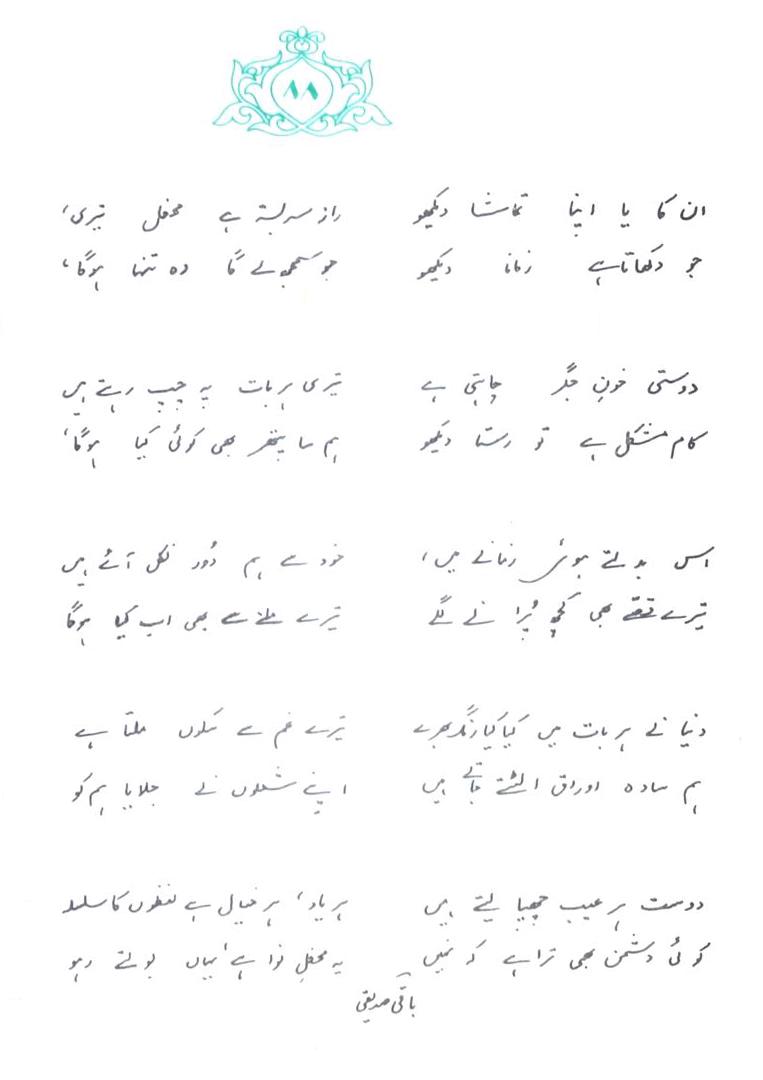 ۸۸
ان کا یا اپنا تماشا دیکھو
جو دکھاتا ہے زمانا دیکھو
راز سربستہ ہے محفل تیری،
جو سمجھ لے گا وہ تنہا ہوگا،
دوستی خونِ جگر چاہتی ہے
کام مشکل ہے تو رستا دیکھو
تیری ہر بات پہ چپ رہتے ہیں
ہم سا پتھر بھی کوئی کیا ہوگا،
اس بدلتے ہوئے زمانے میں،
تیرے قصّے بھی کچھ پُرانے لگے
خود سے ہم دُور نکل آئے ہیں
تیرے ملنے سے بھی اب کیا ہوگا
دنیا نے ہر بات میں کیا کیا رنگ بھرے
ہم سادہ اوراق الٹتے جاتے ہیں
تیرے غم سے سکوں ملتا ہے
اپنے شعلوں نے جلایا ہم کو
دوست ہر عیب چھپا لیتے ہیں
کوئی دشمن بھی ترا ہے کہ نہیں
ہر یاد، ہر خیال ہے لفظوں کا سلسلہ
یہ محفلِ نوا ہے، یہاں بولتے رہو
باقی صدیقی